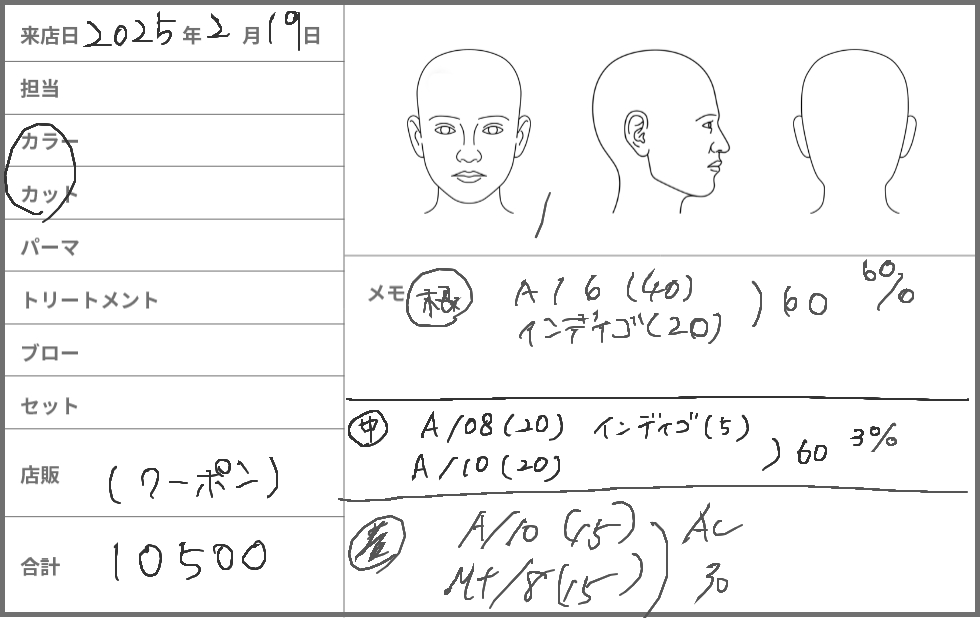 来店日 2025年2月19日
担当
カラー
カット
パーマ
トリートメント
ブロー
セット
店販 (クーポン)
合計 10500
メモ 根 A/6 (40) ) 60 6%
インディゴ(20)
中 A/08(20) インディゴ(5) ) 60 3%
A/10(20)
A/10 (15) ) Ac
Mt/8(15) 30